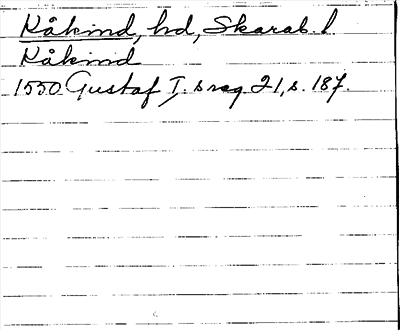 Kåkind, hd, Skarab. l
Kåkind
1550 Gustaf I:s reg. 21, s. 187.